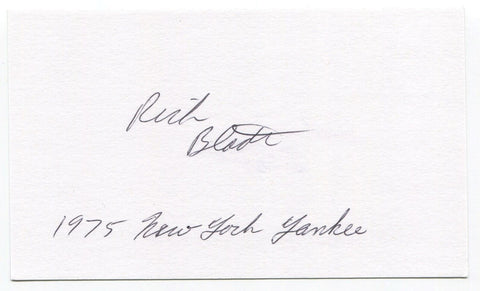 Rich
Bladt
1975 New York Yankee